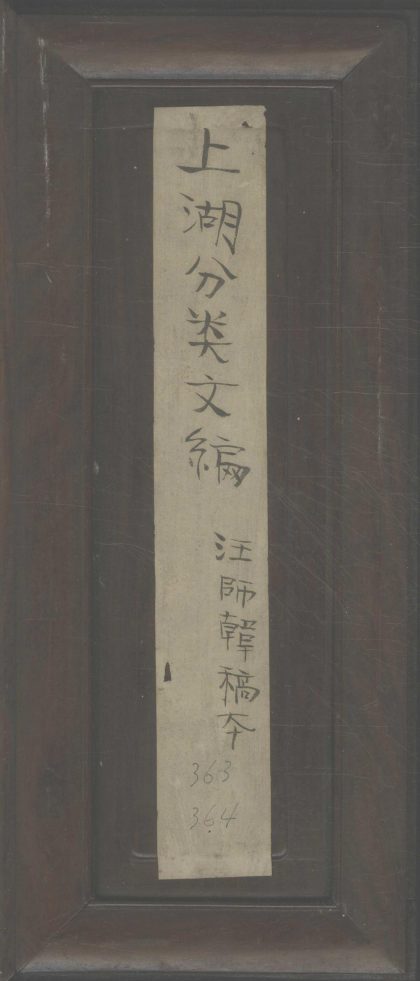 上湖分类文編
汪師韓稿本
363
364